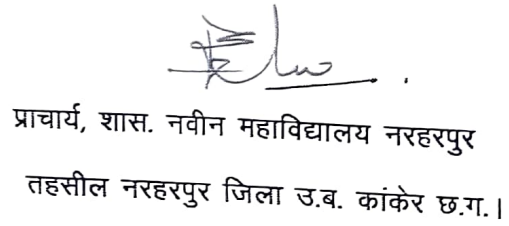 प्राचार्य, शास. नवीन महाविद्यालय नरहरपुर
तहसील नरहरपुर जिला उ.ब. कांकेर छ.ग.।